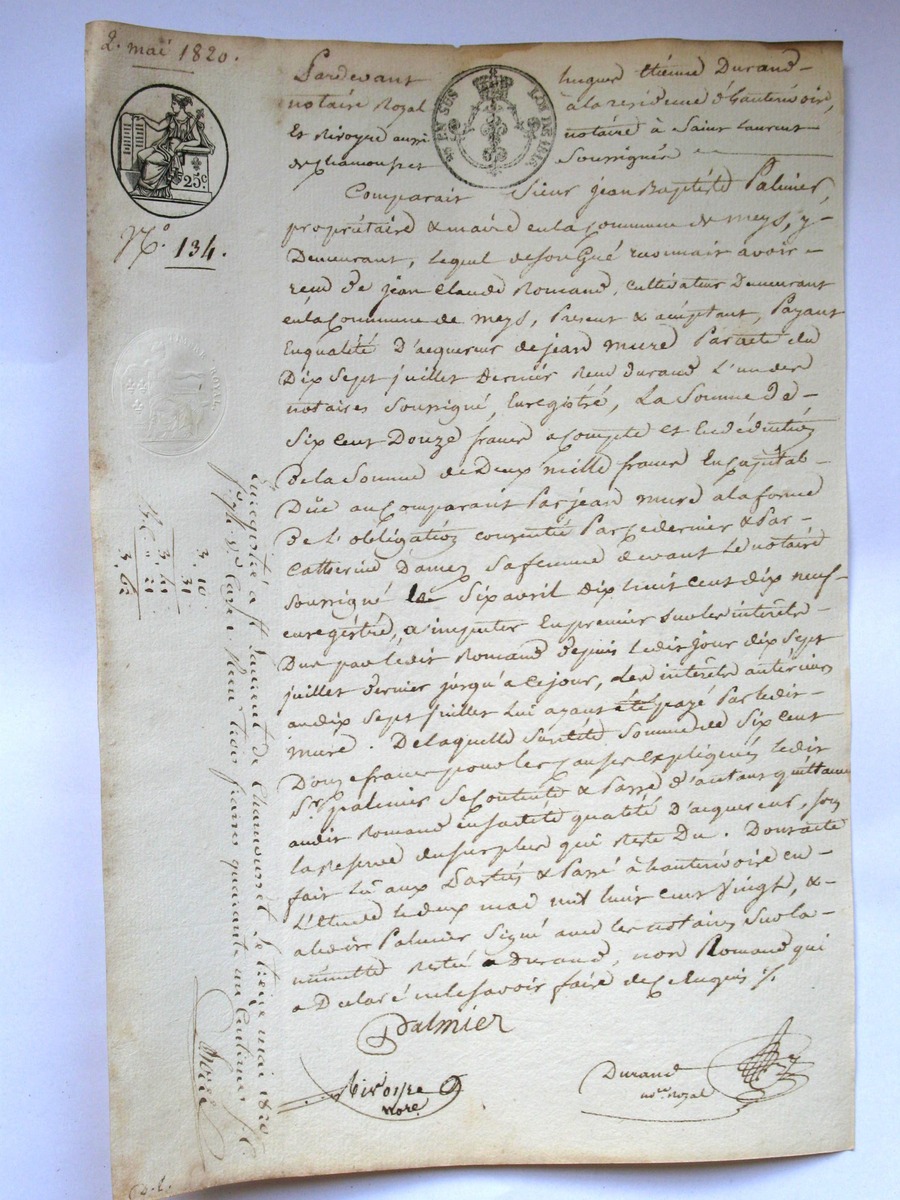 2. mai 1820.
25c
EN SUS
LOI DE 1816
N.o 134.
Pardevant hugues Etienne Durand
notaire Royal à la residence d'hauterivoire,
Et Rivoyre aussi notaire à Saint Laurent
de Chamousset Soussignés
Comparait Sieur jean Baptiste Palmier,
propriétaire & maire en la Commune de meys, y
Demeurant, lequel de son Gré reconnait avoir
recu de jean Claude Romand, cultivateur Demeurant
en la Commune de meys, Present & acceptant, Payant
En qualité D'acquereur de jean mure Par acte du
Dix Sept juillet dernier recu durand L'un des
notaires Soussigné, Enregistré, La Somme De
Six Cent Douze francs a Compte et En déduction
De la Somme de Deux mille francs En Capital
Düe au Comparant Par jean mure a la forme
De L'obligation consentie Par ce dernier & Par
Catherine Damez Sa femme devant Le notaire
Soussigné le Six avril dix huit cent dix neuf
enregistré, a imputer En premier Sur les intérêts
Dus par ledit Romand depuis Ledit jour dix Sept
juillet dernier jusqu'a ce jour, Les intérêts antérieurs
au dix Sept juillet Lui ayant été payé Par ledit
mure. De laquelle Susdite Somme de Six Cent
Douze francs pour les causes expliquées ledit
Sr. palmier Se Contente & Passe d'autant quittance
audit Romand en sadite qualité D'acquereur, sous
la Reserve du surplus qui Reste Du. Dont acte
fait Lu aux Parties & Passé à hauterivoire en
L'Etude Le deux mai mil huit cent Vingt, &
a ledit Palmier Signé avec les notaires Sur la
minutte Restée a Durand, non Romand qui
a Déclaré ne le Savoir faire de Ce Enquis
Palmier
Rivoyre
nore.
Durand
nore. Royal
Enregistré a St. Laurent de Chamousset Le treize mai 1820
trois francs quarante un Centimes
3, 10
31
3, 41
21
3, 62